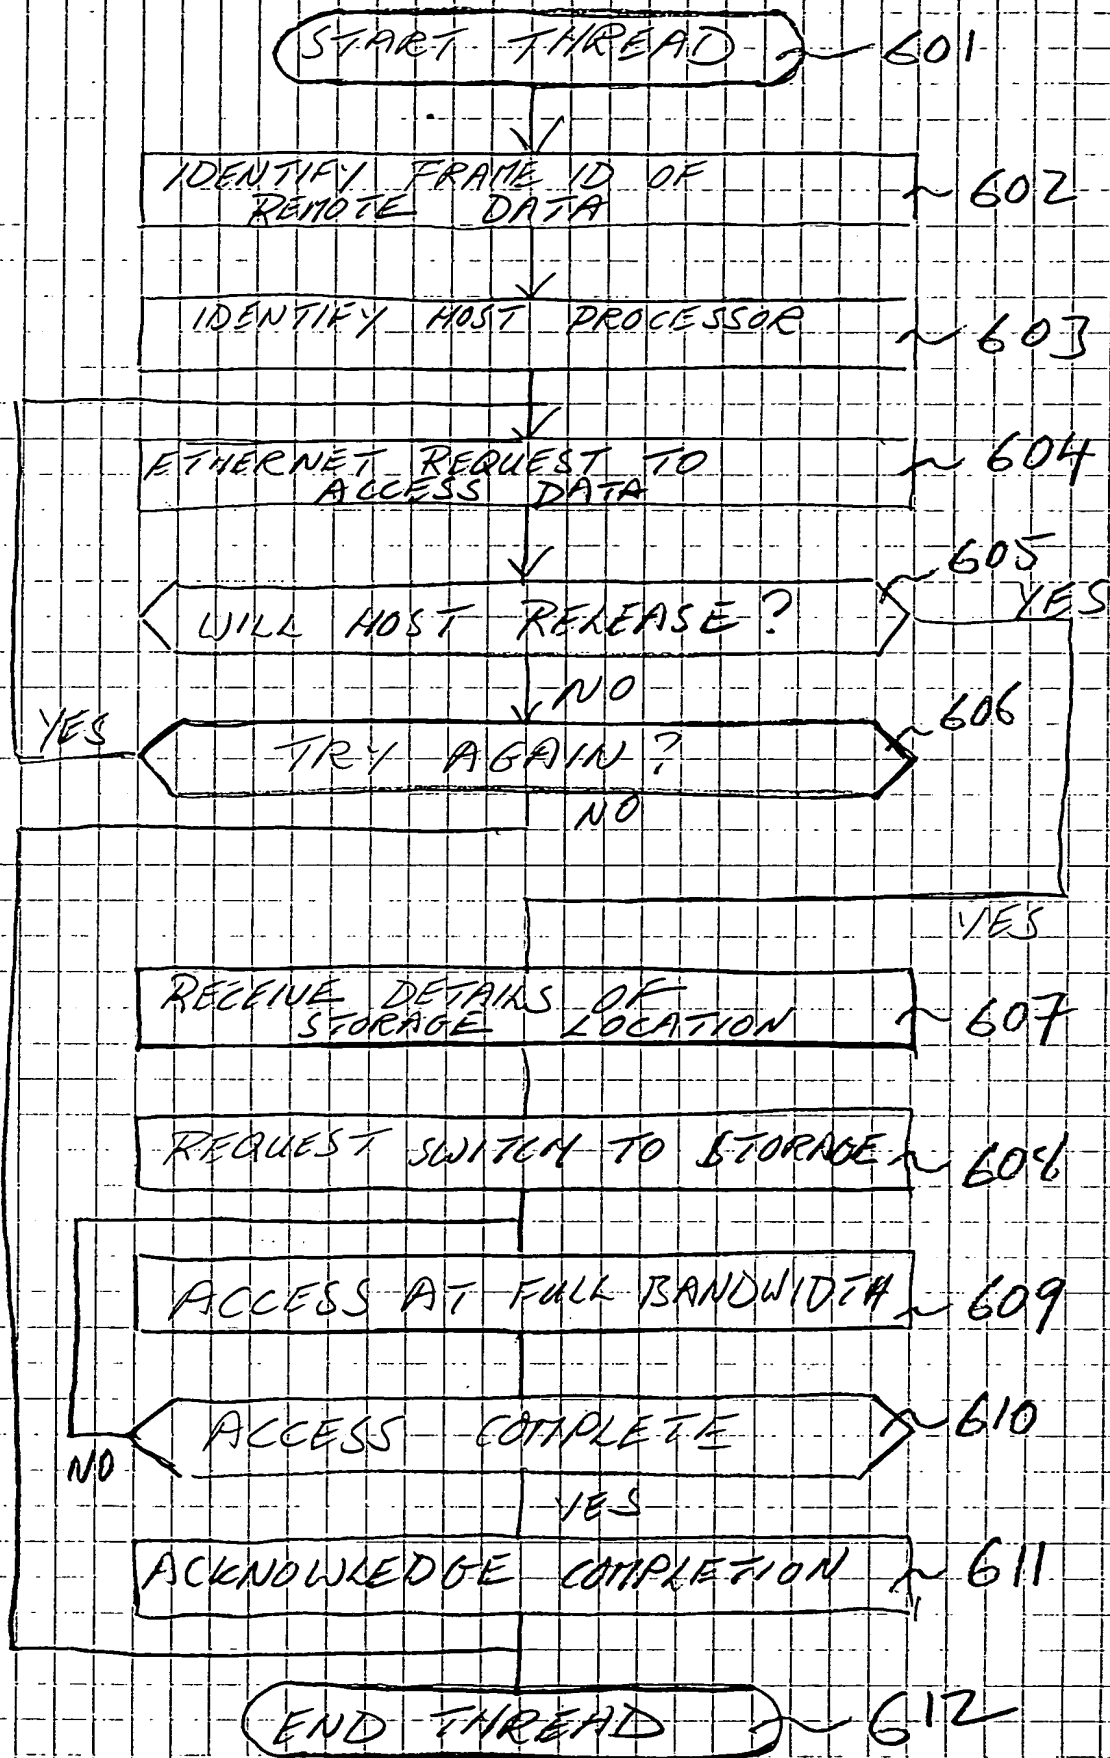 START THREAD 601
IDENTIFY FRAME ID OF
REMOTE DATA
602
IDENTIFY HOST PROCESSOR 603
ETHERNET REQUEST TO
ACCESS DATA
604
605
WILL HOST RELEASE? YES
NO
606
YES TRY AGAIN?
NO
YES
RECEIVE DETAILS OF
STORAGE LOCATION
607
REQUEST SWITCH TO STORAGE 608
ACCESS AT FULL BANDWIDTH 609
ACCESS COMPLETE 610
NO
YES
ACKNOWLEDGE COMPLETION 611
END THREAD 612